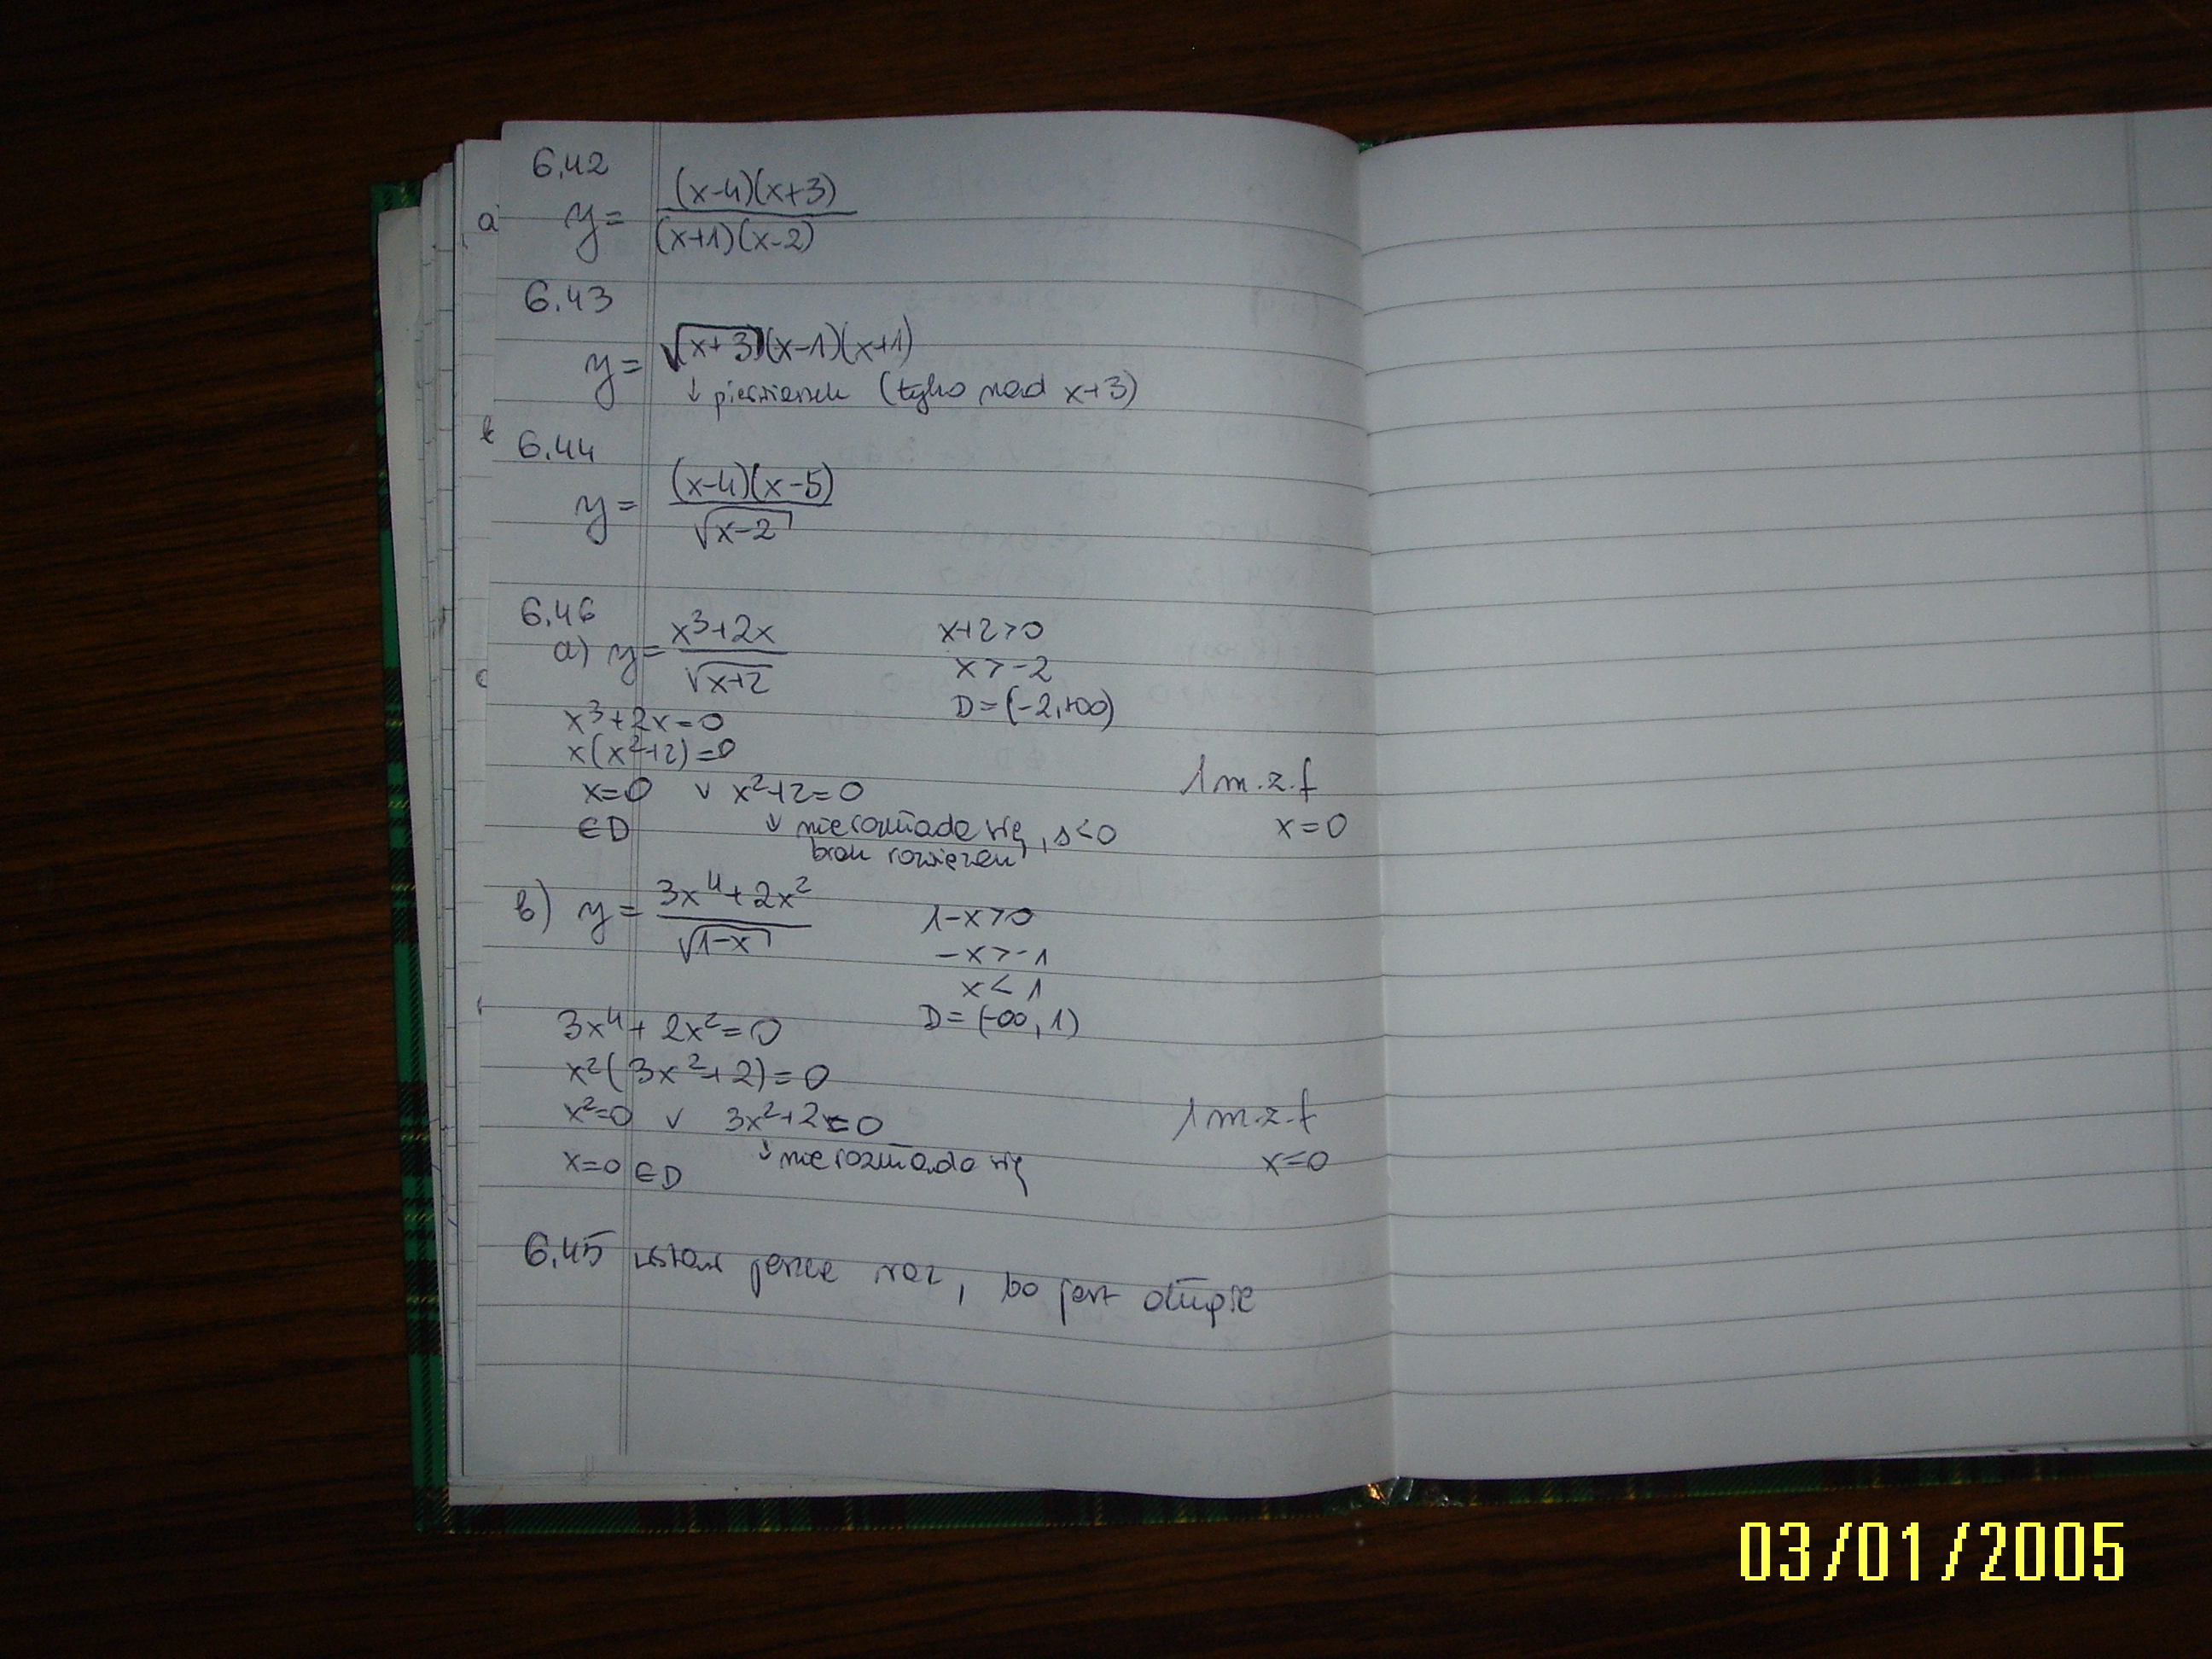 6.42
a y = (x-4)(x+3)
(x+1)(x-2)
6.43
y = √x+3 (x-1)(x+1)
↓ pierwiastek (tylko nad x+3)
6.44
y = (x-4)(x-5)
√x-2
6.46
a) y = x³+2x
√x+2
x+2>0
x>-2
D=(-2,+∞)
x³+2x=0
x(x²+2)=0
x=0 ∨ x²+2=0
∈D ↓ nierozkłada się, Δ<0
brak rozwiązań
1 m.z.f
x=0
b) y = 3x⁴+2x²
√1-x
1-x>0
-x>-1
x<1
D=(-∞,1)
3x⁴+2x²=0
x²(3x²+2)=0
x²=0 ∨ 3x²+2=0
x=0 ∈D ↓ nierozkłada się
1 m.z.f
x=0
6.45 raz, bo jest
03/01/2005